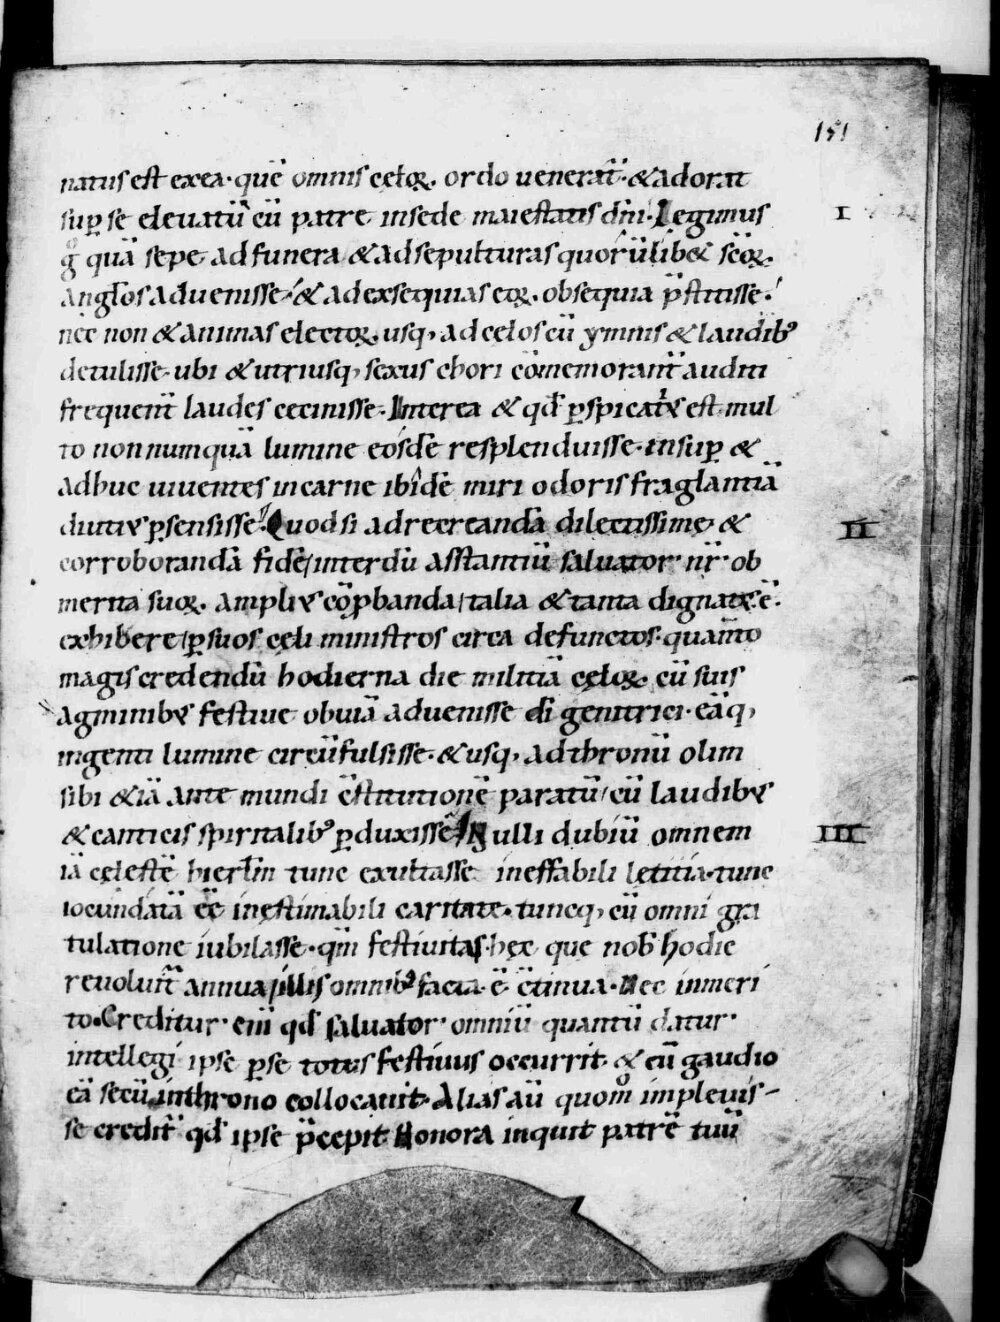 151
natus est ex ea· quē omnis cęloꝝ. ordo ueneratᷣ· & adorat
suꝑ se eleuatū cū patre in sede maiestatis dn̄i· Legimus
I
g̊ quā sepe ad funera & ad sepulturas quorūlib& sc̄oꝝ.
anglos aduenisse· & ad exsequias eoꝝ. obsequia p̄stitisse·
nec non & animas electoꝝ. usq, ad cęlos cū ymnis & laudib᾽
detulisse· ubi & utriusq, sexus chori cōmemoranᷣt auditi
frequent̄ laudes cecinisse· Interea & qđ ꝑspicatiꝰ est mul
to non numquā lumine eosdē resplenduisse· insuꝑ &
adhuc uiuentes in carne ibidē miri odoris fraglantiā
diutiꝰ ꝑsensisse· Quod si ad recreandā dilectissime, &
II
corroborandā fidē/ interdū asstantiū saluator· nr̄· ob
merita suoꝝ. ampliꝰ cōp̱banda/ talia & tanta dignatꝰ· ē·
exhibere/ ꝑ suos cęli ministros circa defunctos· quanto
magis credendū hodierna die militiā cęloꝝ. cū suis
agminibꝰ festiue obuiā aduenisse dī genitrici· eāq,
ingenti lumine circūfulsisse· & usq, ad thronū olim
sibi & iā ante mundi c̄stitutionē paratū/ cū laudibꝰ
& canticis spiritalib᾽ ꝑduxisse· Nulli dubiū omnem
III
iā cęlestē hierl̄m tunc exultasse ineffabili letitia· tunc
iocundatā eē inęstimabili caritate· tuncq, cū omni gra
tulatione iubilasse· qm̄ festiuitas hęc que nob᾽ hodie
reuoluitᷣ annua/ illis omnib᾽ facta· ē· c̄tinua· Nec inmeri
to· Creditur· eni qđ saluator· omniū quantū datur·
intellegi ipse ꝑ se totus festiuus occurrit· & cū gaudio
eā secū in throno collocauit· Alias aū quom̊ impleuis-
se creditᷣ qđ ipse p̄cepit· Honora inquit patrē tuū